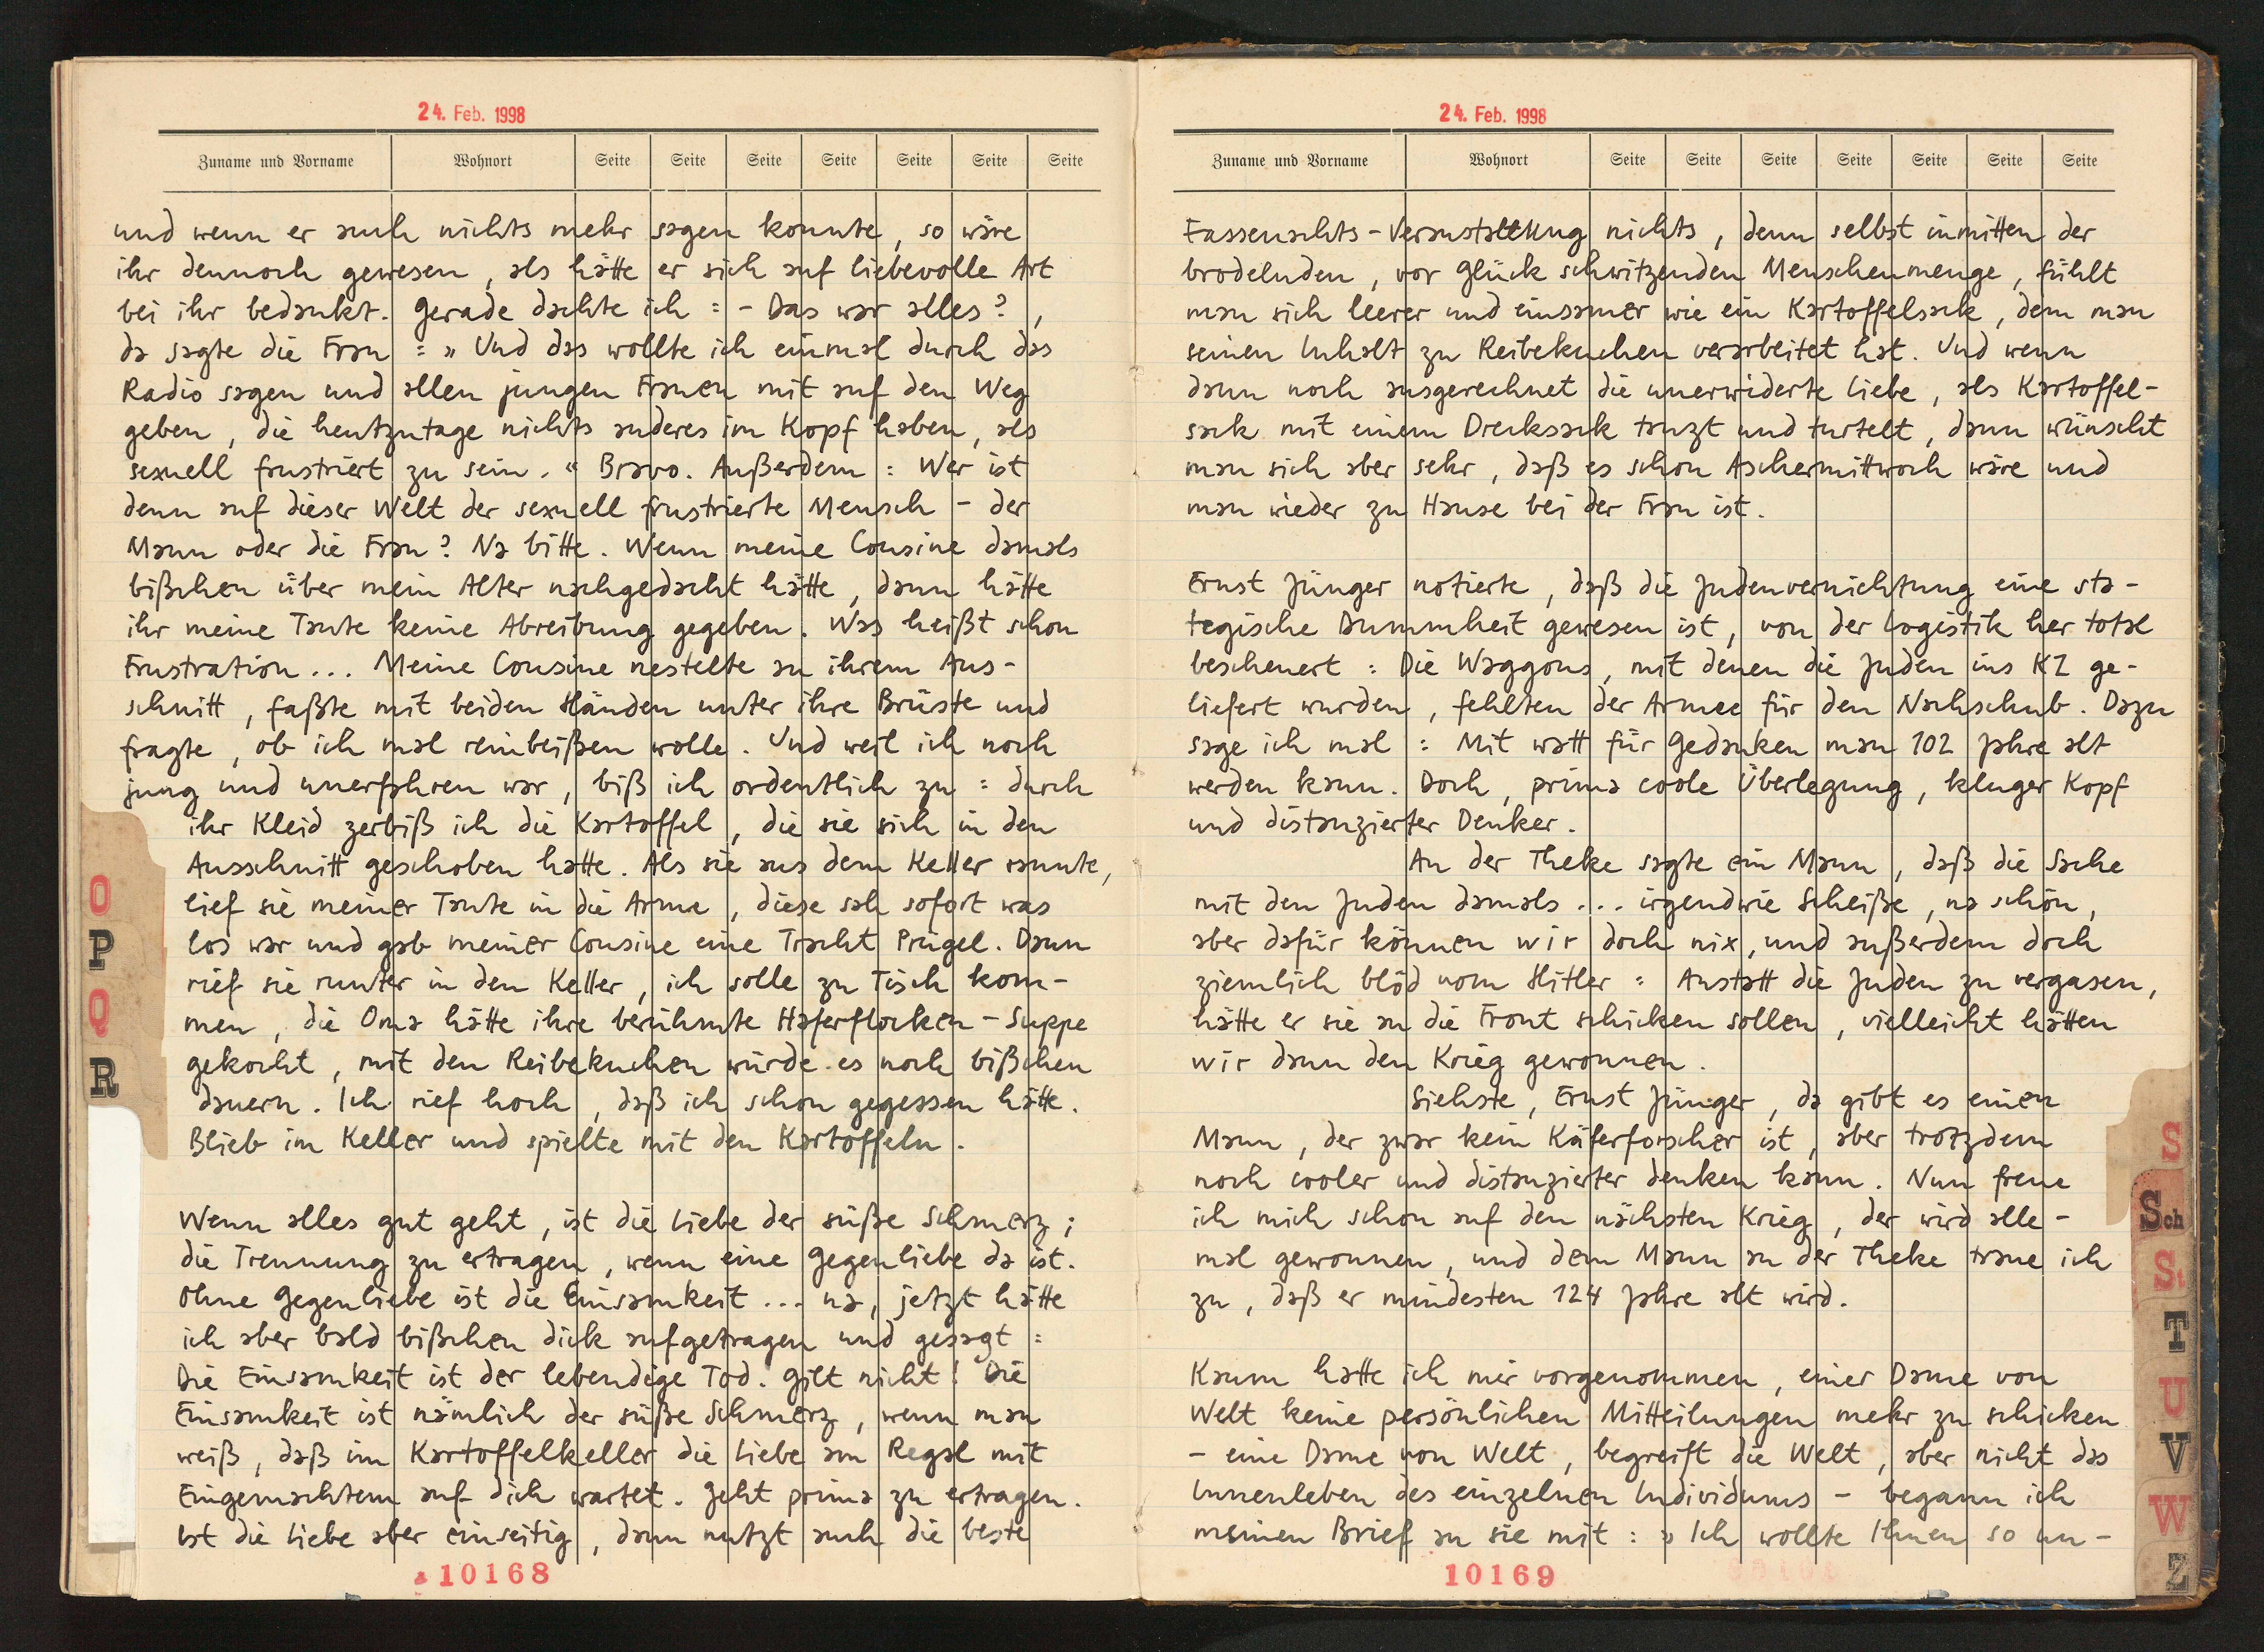 24. Feb. 1998
Zuname und Vorname Wohnort Seite Seite Seite Seite Seite Seite Seite
und wenn er auch nichts mehr sagen konnte, so wäre
ihr dennoch gewesen, als hätte er sich auf liebevolle Art
bei ihr bedankt. Gerade dachte ich: - Das war alles?,
da sagte die Frau: „Und das wollte ich einmal durch das
Radio sagen und allen jungen Frauen mit auf den Weg
geben, die heutzutage nichts anderes im Kopf haben, als
sexuell frustriert zu sein.“ Bravo. Außerdem: Wer ist
denn auf dieser Welt der sexuell frustrierte Mensch - der
Mann oder die Frau? Na bitte. Wenn meine Cousine damals
bißchen über mein Alter nachgedacht hätte, dann hätte
ihr meine Tante keine Abreibung gegeben. Was heißt schon
Frustration... Meine Cousine nestelte an ihrem Aus-
schnitt, faßte mit beiden Händen unter ihre Brüste und
fragte, ob ich mal reinbeißen wolle. Und weil ich noch
jung und unerfahren war, biß ich ordentlich zu: durch
ihr Kleid zerbiß ich die Kartoffel, die sie sich in den
Ausschnitt geschoben hatte. Als sie aus dem Keller rannte,
lief sie meiner Tante in die Arme, diese sah sofort was
los war und gab meiner Cousine eine Tracht Prügel. Dann
rief sie runter in den Keller, ich solle zu Tisch kom-
men, die Oma hätte ihre berühmte Haferflocken-Suppe
gekocht, mit den Reibekuchen würde es noch bißchen
dauern. Ich rief hoch, daß ich schon gegessen hätte.
Blieb im Keller und spielte mit den Kartoffeln.
Wenn alles gut geht, ist die Liebe der süße Schmerz;
die Trennung zu ertragen, wenn eine Gegenliebe da ist.
Ohne Gegenliebe ist die Einsamkeit... na, jetzt hätte
ich aber bald bißchen dick aufgetragen und gesagt:
Die Einsamkeit ist der lebendige Tod. Gilt nicht! Die
Einsamkeit ist nämlich der süße Schmerz, wenn man
weiß, daß im Kartoffelkeller die Liebe am Regal mit
Eingemachtem auf dich wartet. Geht prima zu ertragen.
Ist die Liebe aber einseitig, dann nutzt auch die beste
10168
O
P
Q
R
24. Feb. 1998
Zuname und Vorname Wohnort Seite Seite Seite Seite Seite Seite Seite
Fassenachts-Veranstaltung nichts, denn selbst inmitten der
brodelnden, vor Glück schwitzenden Menschenmenge, fühlt
man sich leerer und einsamer wie ein Kartoffelsack, dem man
seinen Inhalt zu Reibekuchen verarbeitet hat. Und wenn
dann noch ausgerechnet die unerwiderte Liebe, als Kartoffel-
sack mit einem Drecksack tanzt und turtelt, dann wünscht
man sich aber sehr, daß es schon Aschermittwoch wäre und
man wieder zu Hause bei der Frau ist.
Ernst Jünger notierte, daß die Judenvernichtung eine sta-
tegische Dummheit gewesen ist, von der Logistik her total
bescheuert: Die Waggons, mit denen die Juden ins KZ ge-
liefert wurden, fehlten der Armee für den Nachschub. Dazu
sage ich mal: Mit watt für Gedanken man 102 Jahre alt
werden kann. Doch, prima coole Überlegung, kluger Kopf
und distanzierter Denker.
An der Theke sagte ein Mann, daß die Sache
mit den Juden damals... irgendwie Scheiße, na schön,
aber dafür können wir doch nix, und außerdem doch
ziemlich blöd vom Hitler: Anstatt die Juden zu vergasen,
hätte er sie an die Front schicken sollen, vielleicht hätten
wir dann den Krieg gewonnen.
Siehste, Ernst Jünger, da gibt es einen
Mann, der zwar kein Käferforscher ist, aber trotzdem
noch cooler und distanzierter denken kann. Nun freue
ich mich schon auf den nächsten Krieg, der wird alle-
mal gewonnen, und dem Mann an der Theke traue ich
zu, daß er mindesten 124 Jahre alt wird.
Kaum hatte ich mir vorgenommen, einer Dame von
Welt keine persönlichen Mitteilungen mehr zu schicken
- eine Dame von Welt, begreift die Welt, aber nicht das
Innenleben des einzelnen Individuums - begann ich
meinen Brief an sie mit: „Ich wollte Ihnen so un-
10169
S
Sch
St
T
U
V
W
Z